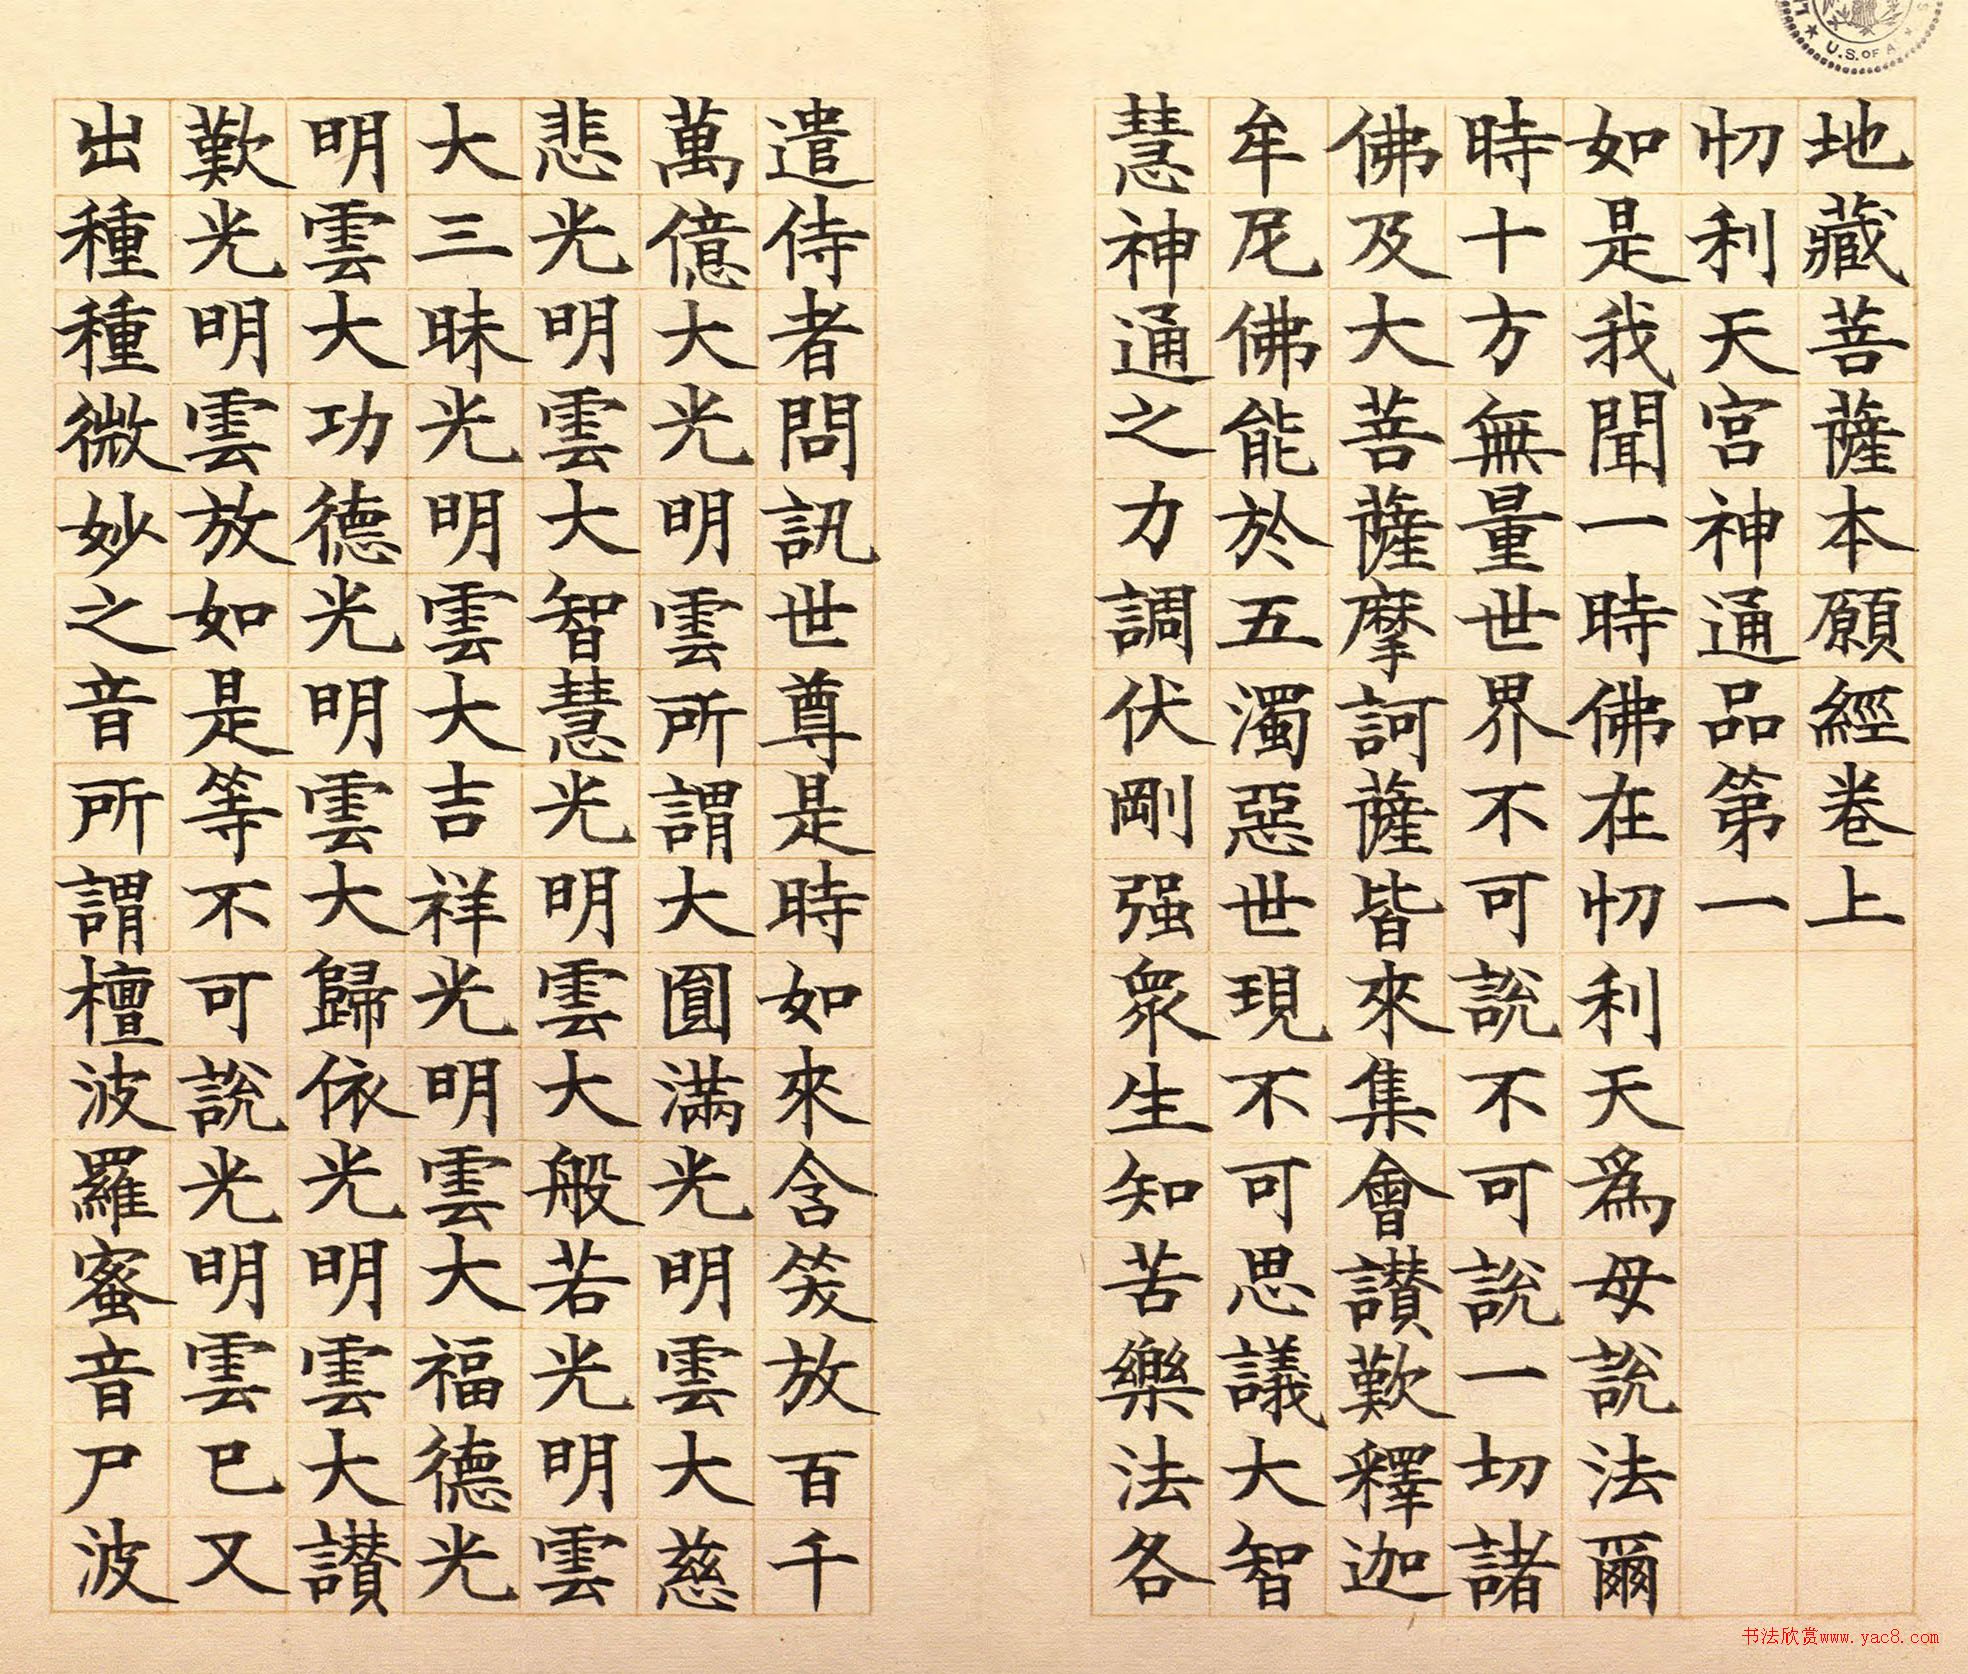 地藏菩薩本願經卷上
忉利天宮神通品第一
如是我聞一時佛在忉利天為母說法爾
時十方無量世界不可說不可說一切諸
佛及大菩薩摩訶薩皆來集會讃歎釋迦
牟尼佛能於五濁惡世現不可思議大智
慧神通之力調伏剛强眾生知苦樂法各
遣侍者問訊世尊是時如來含笑放百千
萬億大光明雲所謂大圓滿光明雲大慈
悲光明雲大智慧光明雲大般若光明雲
大三昧光明雲大吉祥光明雲大福德光
明雲大功德光明雲大歸依光明雲大讃
歎光明雲放如是等不可說光明雲已又
出種種微妙之音所謂檀波羅蜜音尸波
U.S. OF A
书法欣赏www.yac8.com